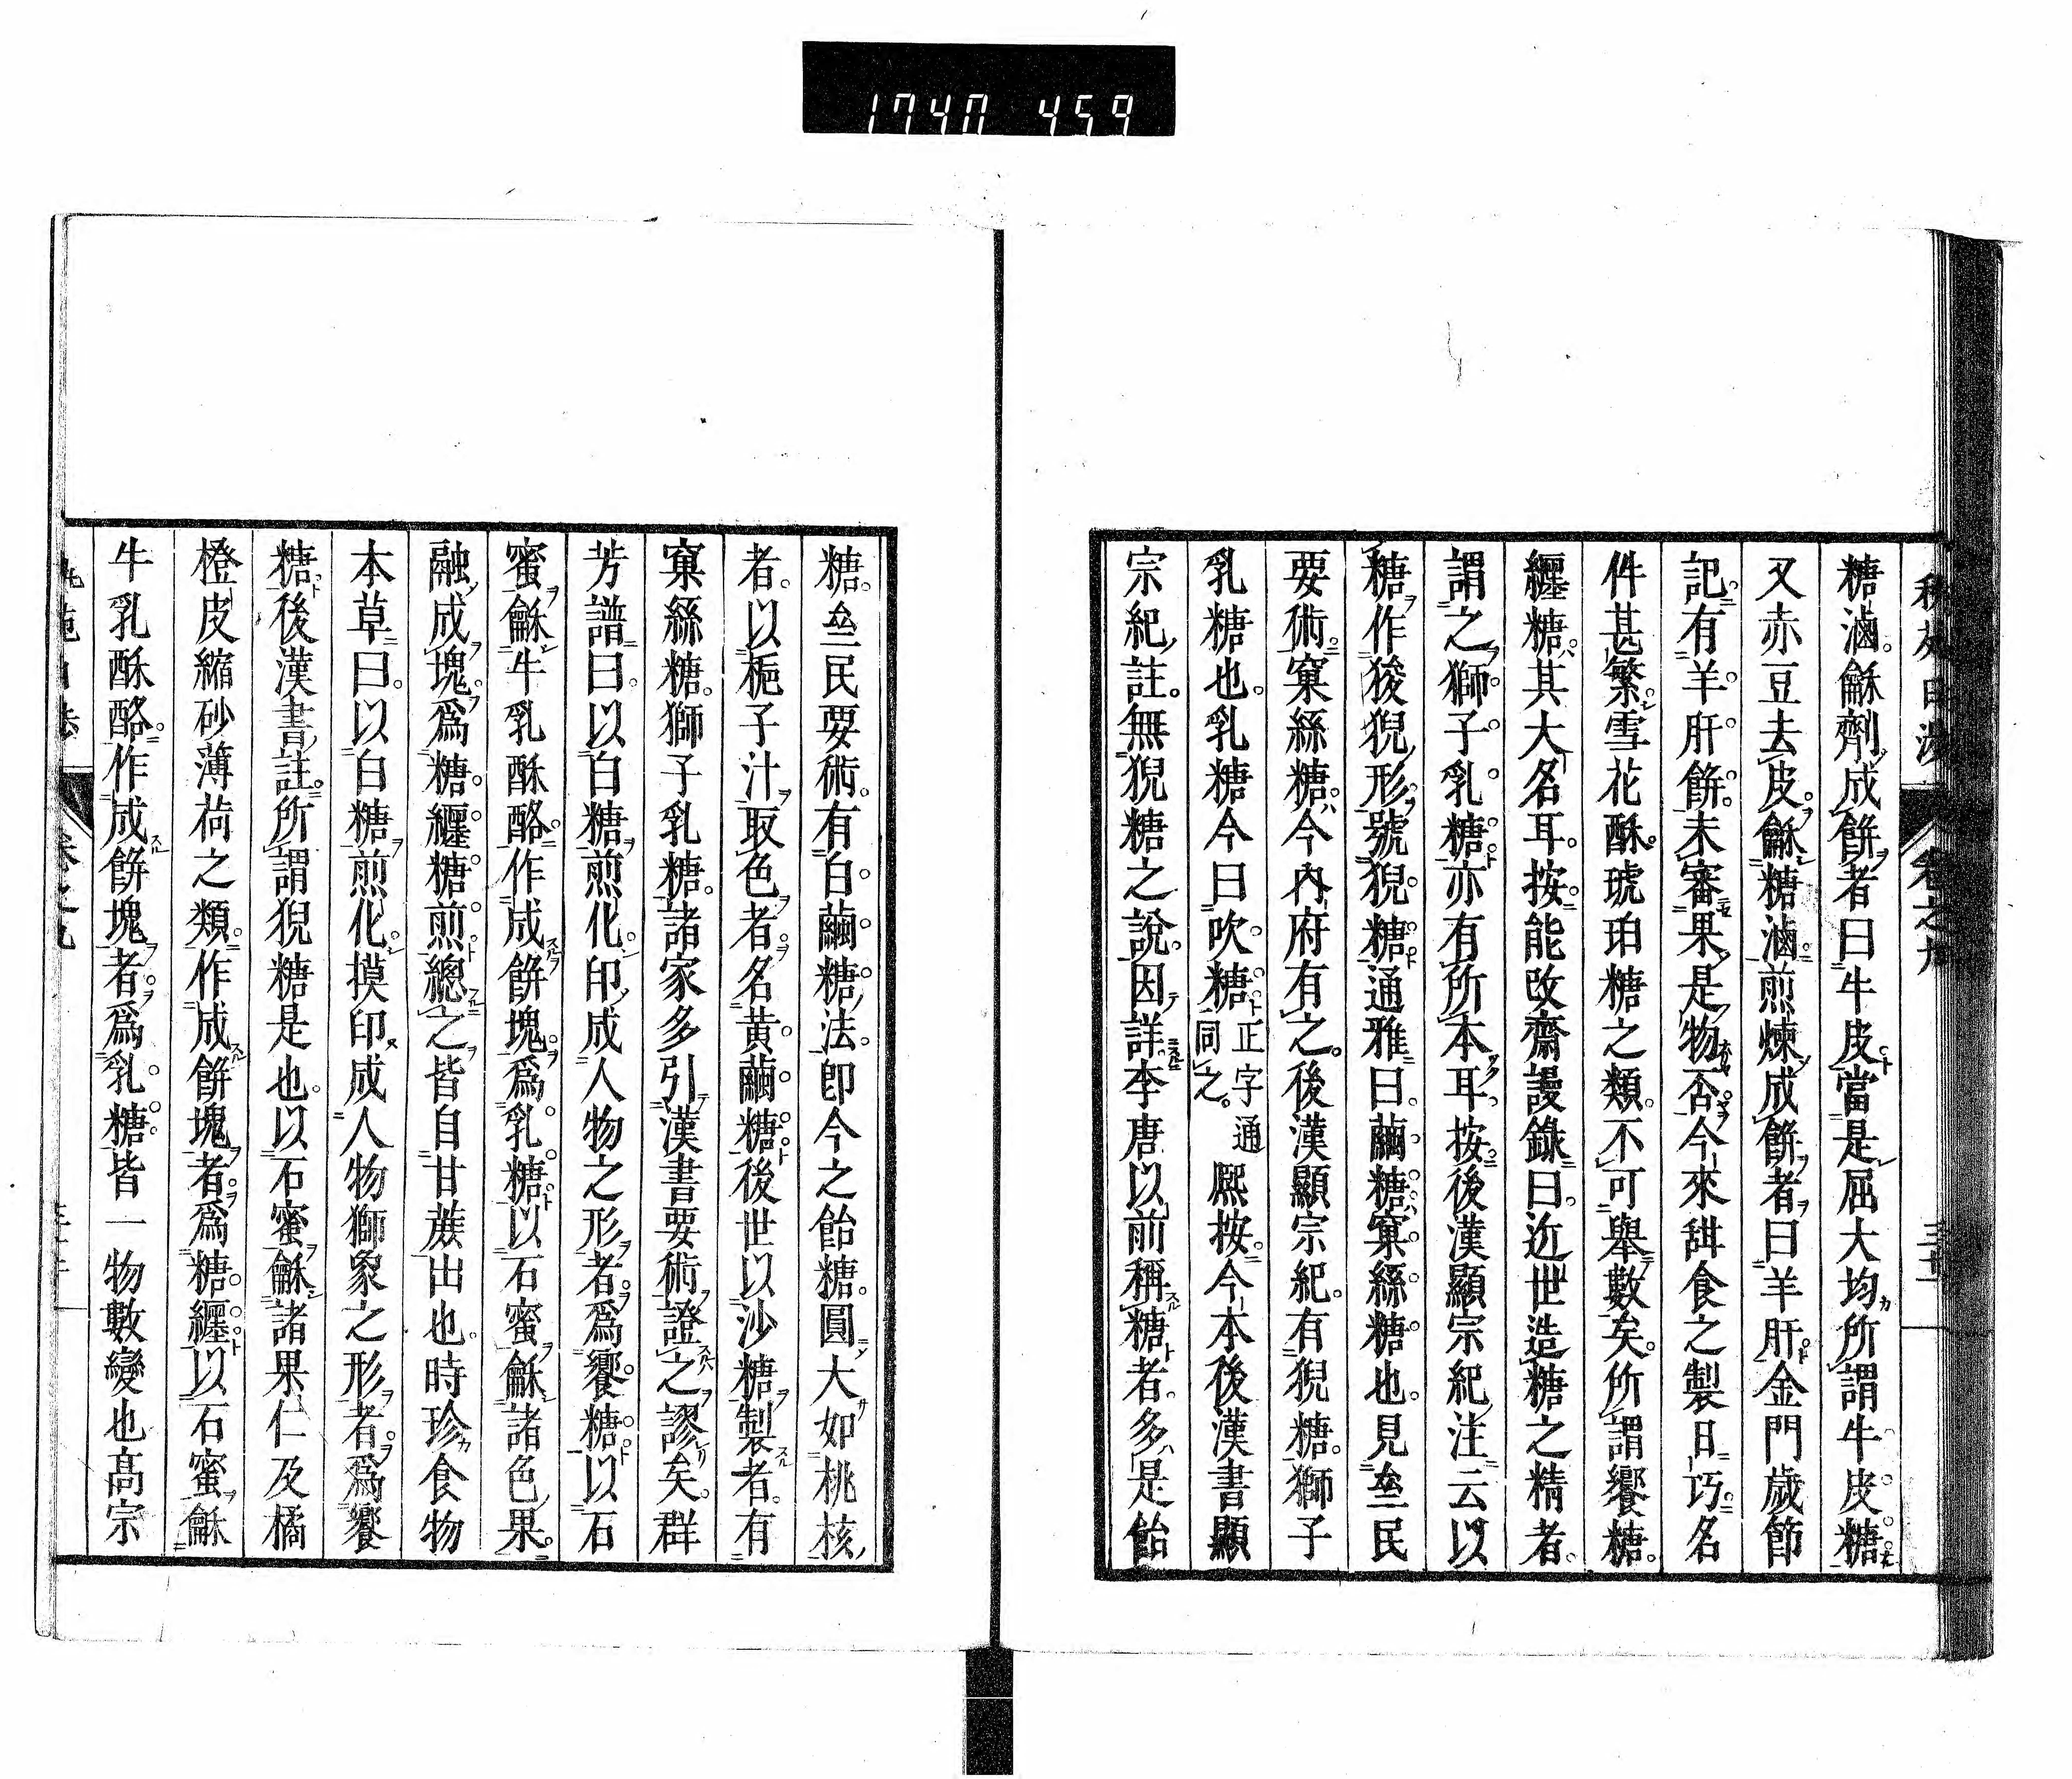 1740 459
糖滷龢劑成餅者曰牛皮當是屈大均所謂牛皮糖
又赤豆去皮龢糖滷煎煉成餅者曰羊肝金門歲節
記有羊肝餅未審果是物否今來甜食之製日巧名
件甚繁雪花酥琥珀糖之類不可舉數矣所謂饗糖
纏糖其大名耳按能改齋謾錄曰近世造糖之精者
謂之獅子乳糖亦有所本耳按後漢顯宗紀注云以
糖作狻猊形號猊糖通雅曰繭糖窠絲糖也見𠫵民
要術窠絲糖今內府有之後漢顯宗紀有猊糖獅子
乳糖也乳糖今曰吹糖正字通同之熙按今本後漢書顯
宗紀註無猊糖之說因詳李唐以前稱糖者多是飴
糖𠫵民要術有白繭糖法卽今之飴糖圓大如桃核
者以梔子汁取色者名黃繭糖後世以沙糖製者有
窠絲糖獅子乳糖諸家多引漢書要術證之謬矣群
芳譜曰以白糖煎化印成人物之形者爲饗糖以石
蜜龢牛乳酥酪作成餅塊爲乳糖以石蜜龢諸色果
融成塊爲糖纏糖煎總之皆自甘蔗出也時珍食物
本草曰以白糖煎化摸印成人物獅象之形者爲饗
糖後漢書註所謂猊糖是也以石蜜龢諸果仁及橘
橙皮縮砂薄荷之類作成餅塊者爲糖纏以石蜜龢
牛乳酥酪作成餅塊者爲乳糖皆一物數變也高宗